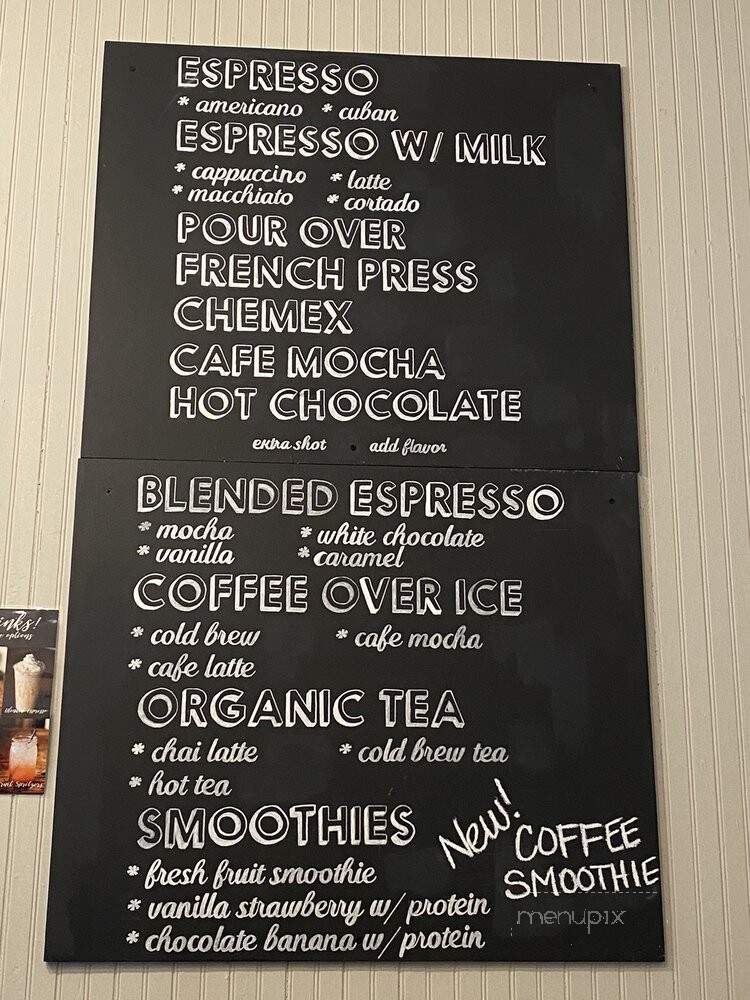 ESPRESSO
* americano * cuban
ESPRESSO W/ MILK
* cappuccino * latte
* macchiato * cortado
POUR OVER
FRENCH PRESS
CHEMEX
CAFE MOCHA
HOT CHOCOLATE
extra shot • add flavor
BLENDED ESPRESSO
* mocha * white chocolate
* vanilla * caramel
COFFEE OVER ICE
* cold brew * cafe mocha
* cafe latte
ORGANIC TEA
* chai latte * cold brew tea
* hot tea
SMOOTHIES
* fresh fruit smoothie
* vanilla strawberry w/ protein
* chocolate banana w/ protein
New! COFFEE
SMOOTHIE
menupix
inks!
options